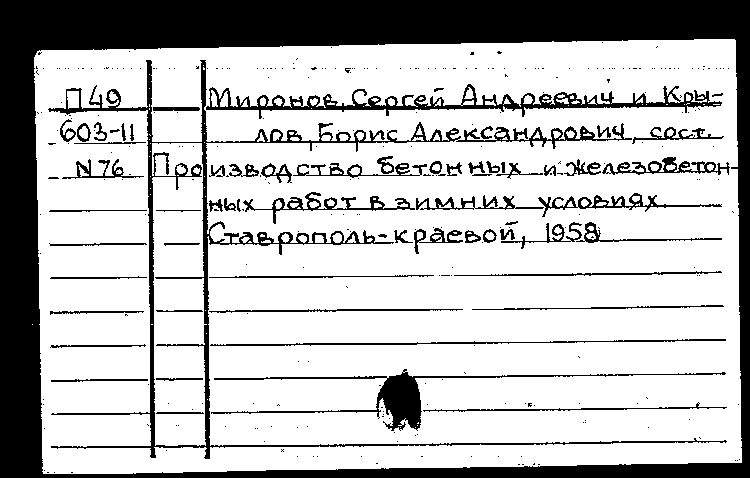 П49 Миронов, Сергей Андреевич и Кры-
603-11 лов, Борис Александрович, сост.
N76 Производство бетонных и железобетон-
ных работ в зимних условиях.
Ставрополь-краевой, 1958